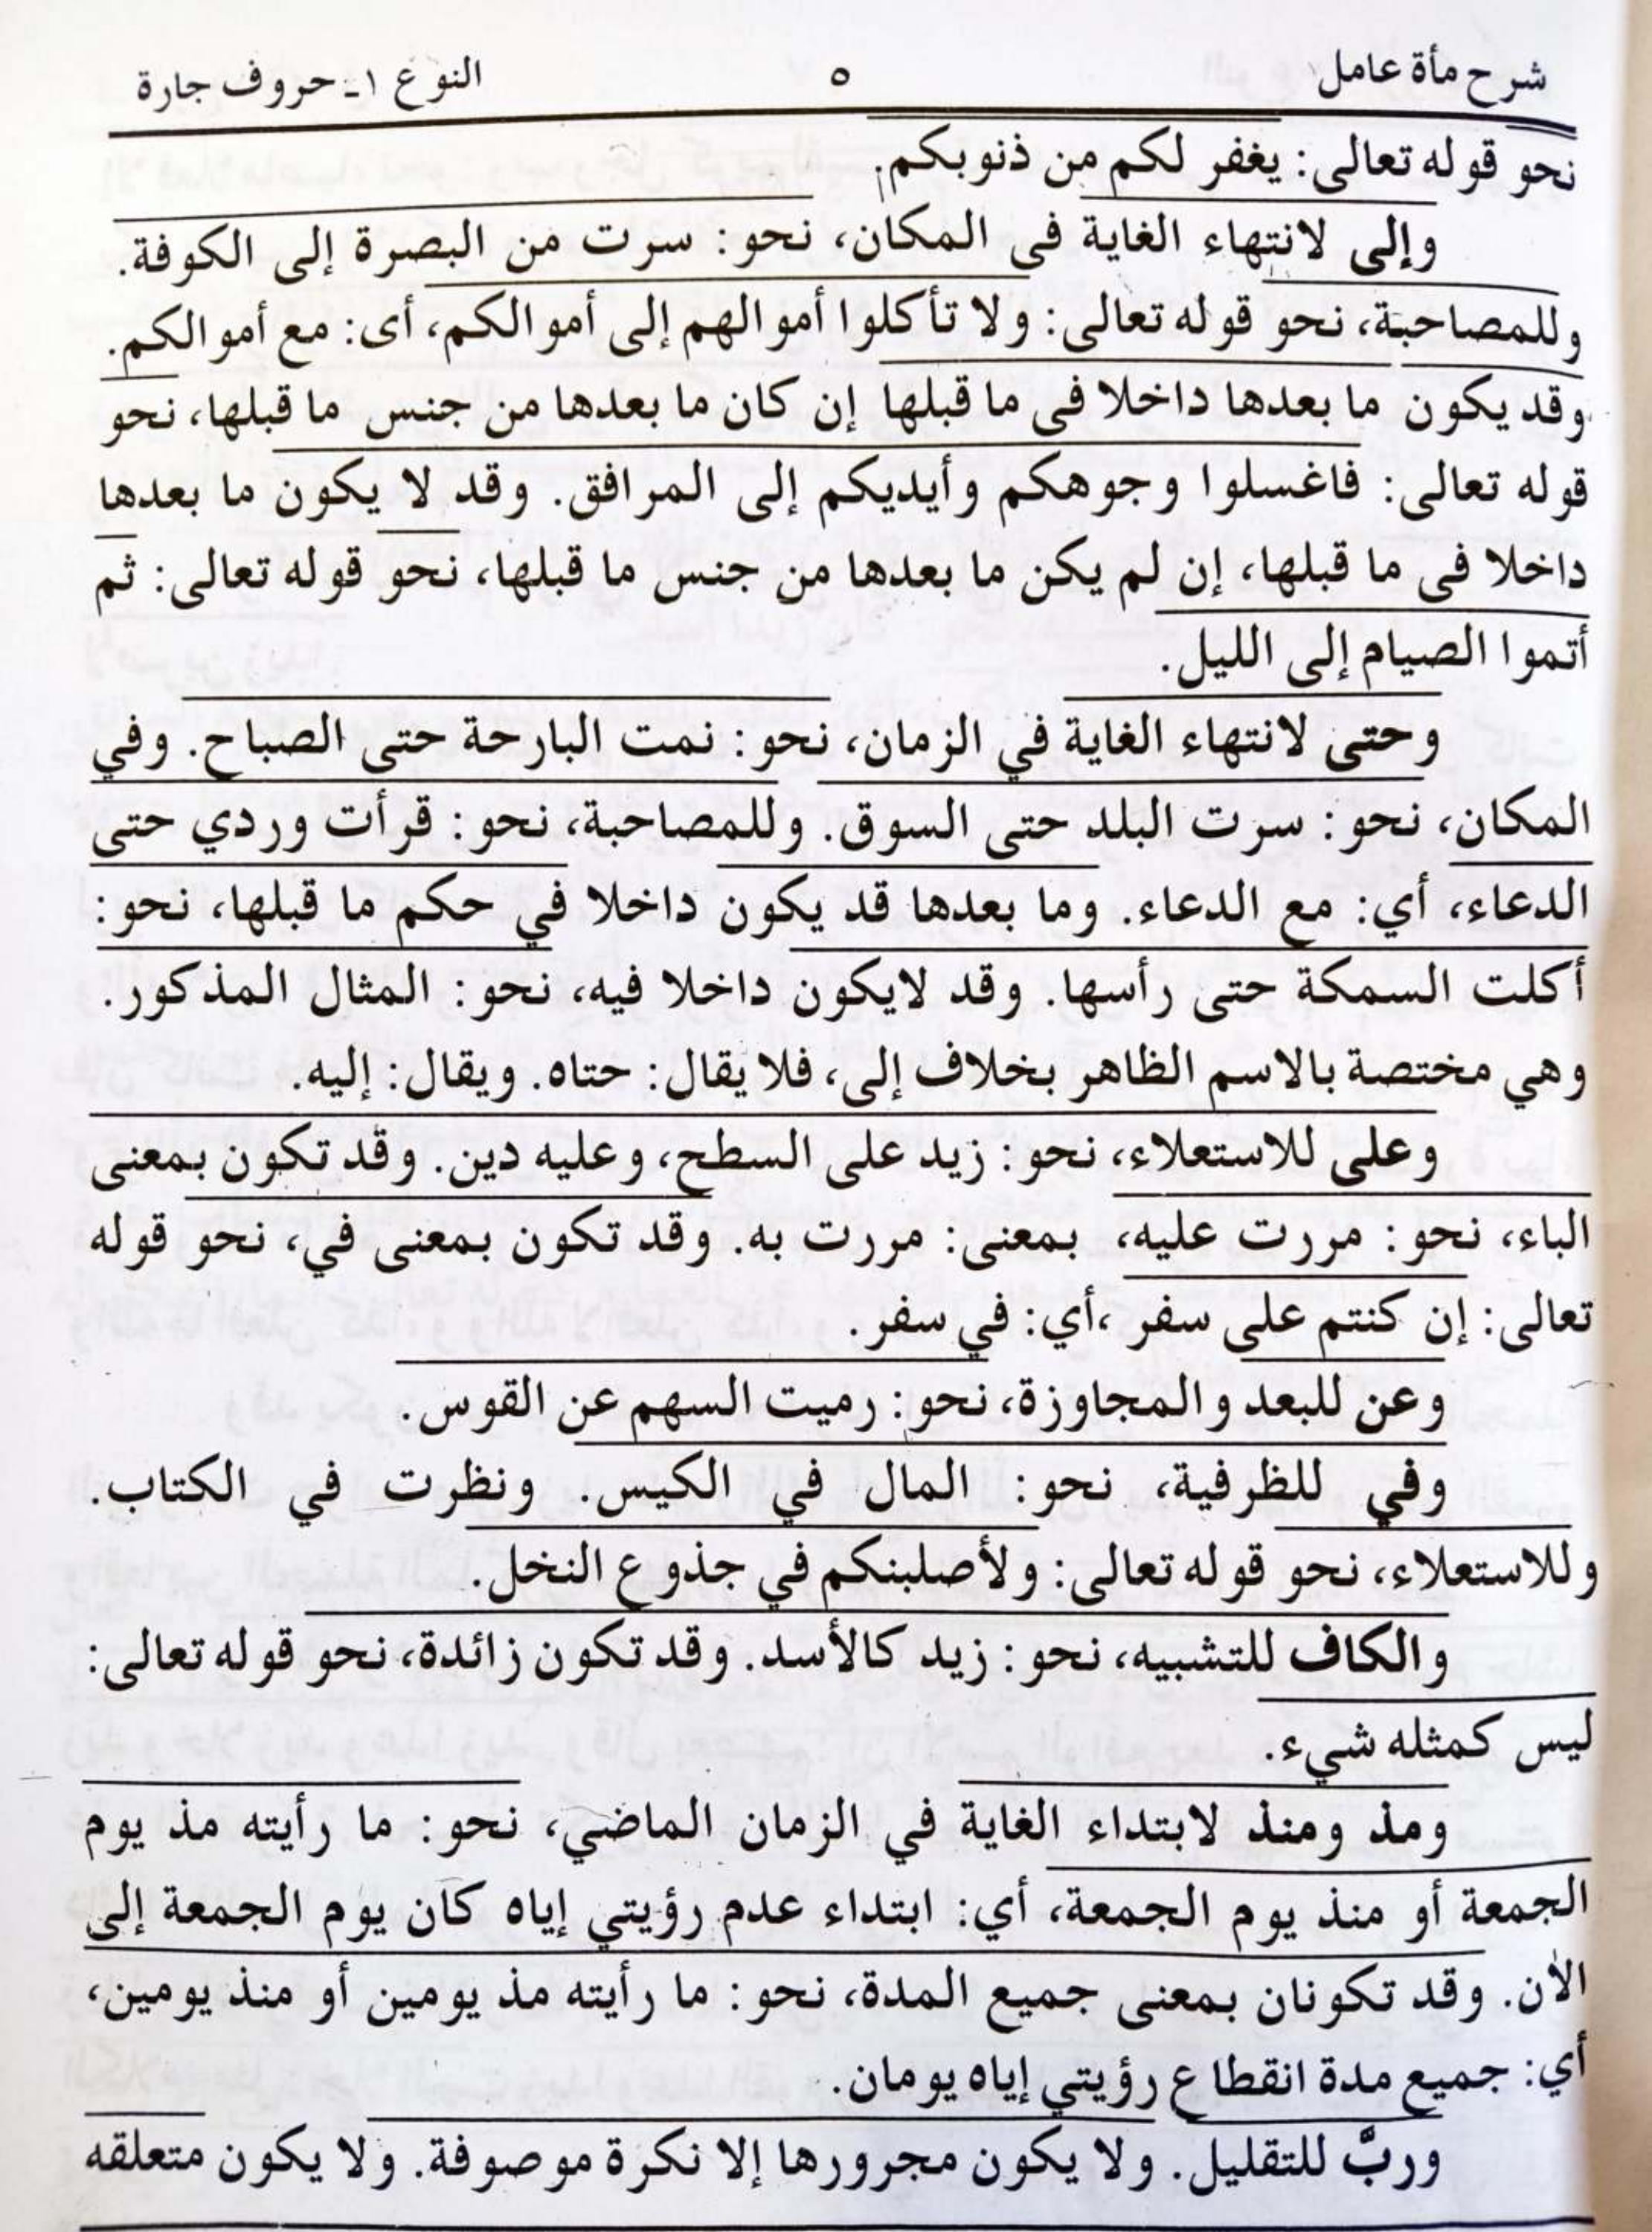 شرح مأة عامل ٥ النوع ١ـ حروف جارة
نحو قوله تعالى: يغفر لكم من ذنوبكم.
وإلى لانتهاء الغاية فى المكان، نحو: سرت من البصرة إلى الكوفة.
وللمصاحبة، نحو قوله تعالى: ولا تأكلوا أموالهم إلى أموالكم، أى: مع أموالكم.
وقد يكون ما بعدها داخلا فى ما قبلها إن كان ما بعدها من جنس ما قبلها، نحو
قوله تعالى: فاغسلوا وجوهكم وأيديكم إلى المرافق. وقد لا يكون ما بعدها
داخلا فى ما قبلها، إن لم يكن ما بعدها من جنس ما قبلها، نحو قوله تعالى: ثم
أتموا الصيام إلى الليل.
وحتى لانتهاء الغاية في الزمان، نحو: نمت البارحة حتى الصباح. وفي
المكان، نحو: سرت البلد حتى السوق. وللمصاحبة، نحو: قرأت وردي حتى
الدعاء، أي: مع الدعاء. وما بعدها قد يكون داخلا في حكم ما قبلها، نحو:
أكلت السمكة حتى رأسها. وقد لايكون داخلا فيه، نحو: المثال المذكور.
وهي مختصة بالاسم الظاهر بخلاف إلى، فلا يقال: حتاه. ويقال: إليه.
وعلى للاستعلاء، نحو: زيد على السطح، وعليه دين. وقد تكون بمعنى
الباء، نحو: مررت عليه، بمعنى: مررت به. وقد تكون بمعنى في، نحو قوله
تعالى: إن كنتم على سفر ،أي: في سفر.
وعن للبعد والمجاوزة، نحو: رميت السهم عن القوس.
وفي للظرفية، نحو: المال في الكيس. ونظرت في الكتاب.
وللاستعلاء، نحو قوله تعالى: ولأصلبنكم في جذوع النخل.
والكاف للتشبيه، نحو: زيد كالأسد. وقد تكون زائدة، نحو قوله تعالى:
ليس كمثله شيء.
ومذ ومنذ لابتداء الغاية في الزمان الماضي، نحو: ما رأيته مذ يوم
الجمعة أو منذ يوم الجمعة، أي: ابتداء عدم رؤيتي إياه كان يوم الجمعة إلى
الآن. وقد تكونان بمعنى جميع المدة، نحو: ما رأيته مذ يومين أو منذ يومين،
أي: جميع مدة انقطاع رؤيتي إياه يومان.
وربَّ للتقليل. ولا يكون مجرورها إلا نكرة موصوفة. ولا يكون متعلقه